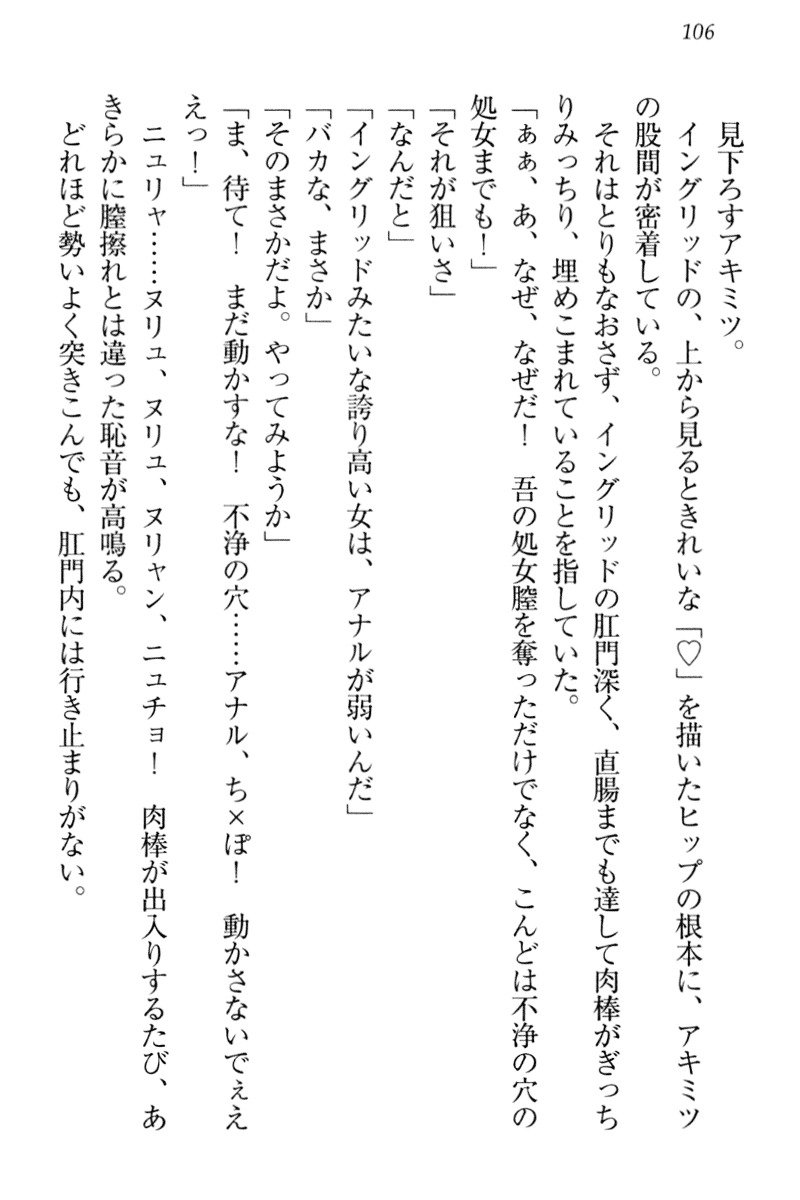 106
見下ろすアキミツ。
イングリッドの、上から見るときれいな「♡」を描いたヒップの根本に、アキミツ
の股間が密着している。
それはとりもなおさず、イングリッドの肛門深く、直腸までも達して肉棒がぎっち
りみっちり、埋めこまれていることを指していた。
「ぁぁ、あ、なぜ、なぜだ！　吾の処女膣を奪っただけでなく、こんどは不浄の穴の
処女までも！」
「それが狙いさ」
「なんだと」
「イングリッドみたいな誇り高い女は、アナルが弱いんだ」
「バカな、まさか」
「そのまさかだよ。やってみようか」
「ま、待て！　まだ動かすな！　不浄の穴……アナル、ち×ぽ！　動かさないでぇえ
えっ！」
ニュリャ……ヌリュ、ヌリュ、ヌリャン、ニュチョ！　肉棒が出入りするたび、あ
きらかに膣擦れとは違った恥音が高鳴る。
どれほど勢いよく突きこんでも、肛門内には行き止まりがない。